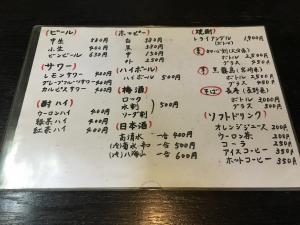 [ビール]
中生 580円
小生 400円
ビンビール 630円
[サワー]
レモンサワー 400円
グレープフルーツサワー 400円
カルピスサワー 400円
[酎ハイ]
ウーロンハイ 400円
緑茶ハイ 400円
紅茶ハイ 400円
[ホッピー]
白 380円
黒 380円
中 150円
外 250
[ハイボール]
ハイボール 500円
[梅酒]
ロック
水割
ソーダ割
500円
[日本酒]
高清水 一合 400円
一合 500円
八海山 一合 600円
[焼酎]
トライアングル 1,900円
(ボトル)
ボトル 2,500円
グラス 450円
黒霧島
ボトル 2,500円
グラス 450円
そば
ボトル 3,000円
グラス 500円
[ソフトドリンク]
オレンジジュース 200円
ウーロン茶 200円
コーラ 250円
アイスコーヒー 350円
ホットコーヒー 350円